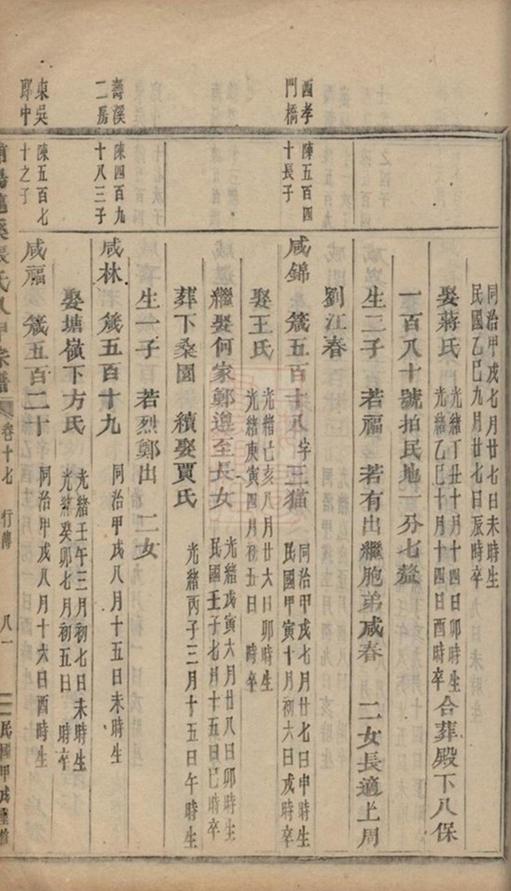 同治甲戌七月廿七日未時生
民國乙巳九月廿七日辰時卒
娶蔣氏 光緒丁丑十月十四日卯時生 合葬殿下八保
光緒乙巳十月十四日酉時卒
一百八十號拍民地一分七釐
生二子 若福 若有出繼胞弟咸春 二女長適上周
劉江春
西孝門橋
陳五百四十長子
咸錦 箴五百十八 字三猫 同治甲戌七月廿七日申時生
民國甲寅十月初六日戌時卒
娶王氏 光緒乙亥八月廿六日卯時生
光緒庚寅四月初五日 時卒
繼娶何家鄭遵至長女 光緒戊寅六月廿八日卯時生
民國壬子七月十五日巳時卒
葬下桑園 續娶賈氏 光緒丙子三月十五日午時生
生一子 若烈鄭出 二女
壽溪二房
陳四百九十八三子
咸林 箴五百十九 同治甲戌八月十五日未時生
娶塘嶺下方氏 光緒壬午三月初七日未時生
光緒癸卯七月初五日 時卒
東吳郎中
陳五百七十之子
咸福 箴五百二十 同治甲戌八月十六日酉時生
張氏八甲宗譜 卷十七 行傳 八一 民國甲戌重修